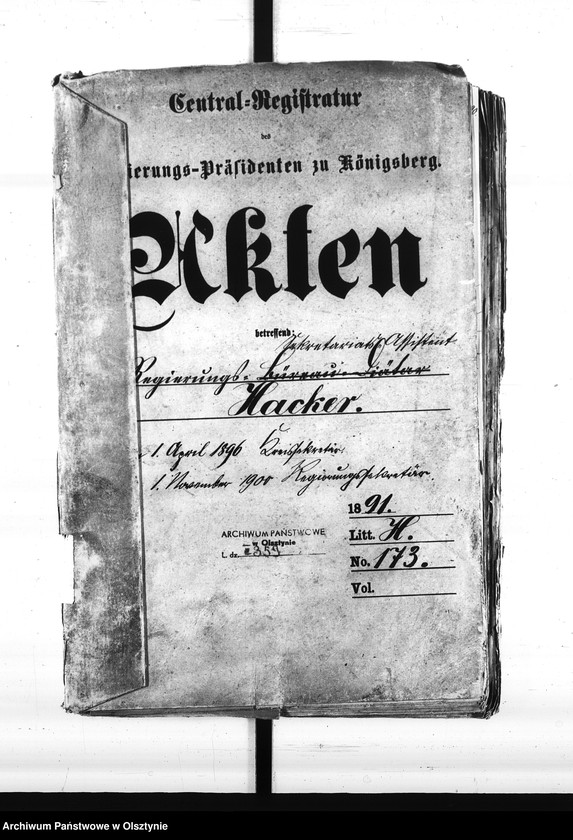 Central-Registratur
des
ierungs-Präsidenten zu Königsberg.
Akten
betreffend:
Sekretariats Assistent
Regierungs-Büreau-Diätar
Hacker.
1. April 1896 Kreissekretär.
1. November 1900 Regierungssekretär.
1891.
ARCHIWUM PAŃSTWOWE
w Olsztynie
L. dz.
Litt. H.
No. 173.
Vol.
Archiwum Państwowe w Olsztynie